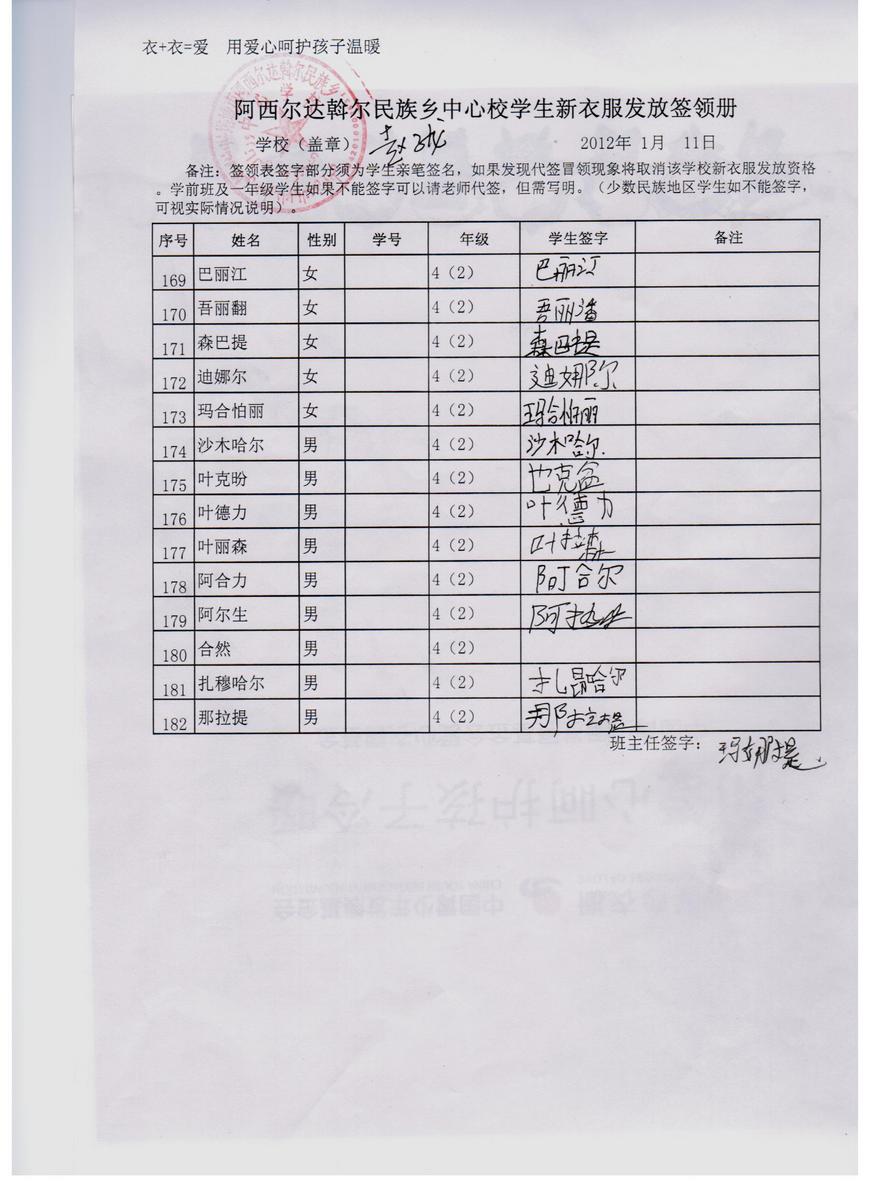 衣+衣=爱　用爱心呵护孩子温暖
阿西尔达斡尔民族乡中心校学生新衣服发放签领册
学校（盖章）
2012年 1月 11日
备注：签领表签字部分须为学生亲笔签名，如果发现代签冒领现象将取消该学校新衣服发放资格
。学前班及一年级学生如果不能签字可以请老师代签，但需写明。（少数民族地区学生如不能签字，
可视实际情况说明）。
序号 姓名 性别 学号 年级 学生签字 备注
169 巴丽江 女 4（2） 巴丽江
170 吾丽翻 女 4（2） 吾丽潘
171 森巴提 女 4（2） 森巴提
172 迪娜尔 女 4（2） 迪娜尔
173 玛合怕丽 女 4（2） 玛合怕丽
174 沙木哈尔 男 4（2） 沙木哈尔
175 叶克盼 男 4（2） 也克盆
176 叶德力 男 4（2） 叶德力
177 叶丽森 男 4（2）
178 阿合力 男 4（2） 阿合尔
179 阿尔生 男 4（2）
180 合然 男 4（2）
181 扎穆哈尔 男 4（2） 扎昆哈尔
182 那拉提 男 4（2） 那拉提
班主任签字：